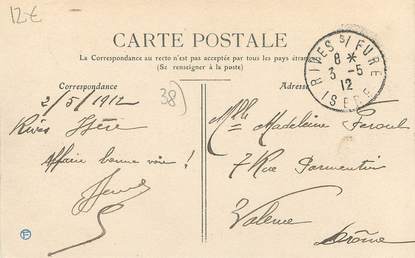 12€
CARTE POSTALE
La Correspondance au recto n'est pas acceptée par tous les pays étran
(Se renseigner à la poste)
Correspondance
Adresse
RIVES s/ FURE
8 *
3 -5
12
ISERE
38
2/5/1912
Rives Isère
Affaire bonne voie !
Mlle Madeleine Feroul
7 Rue Parmentier
Valence
Drôme